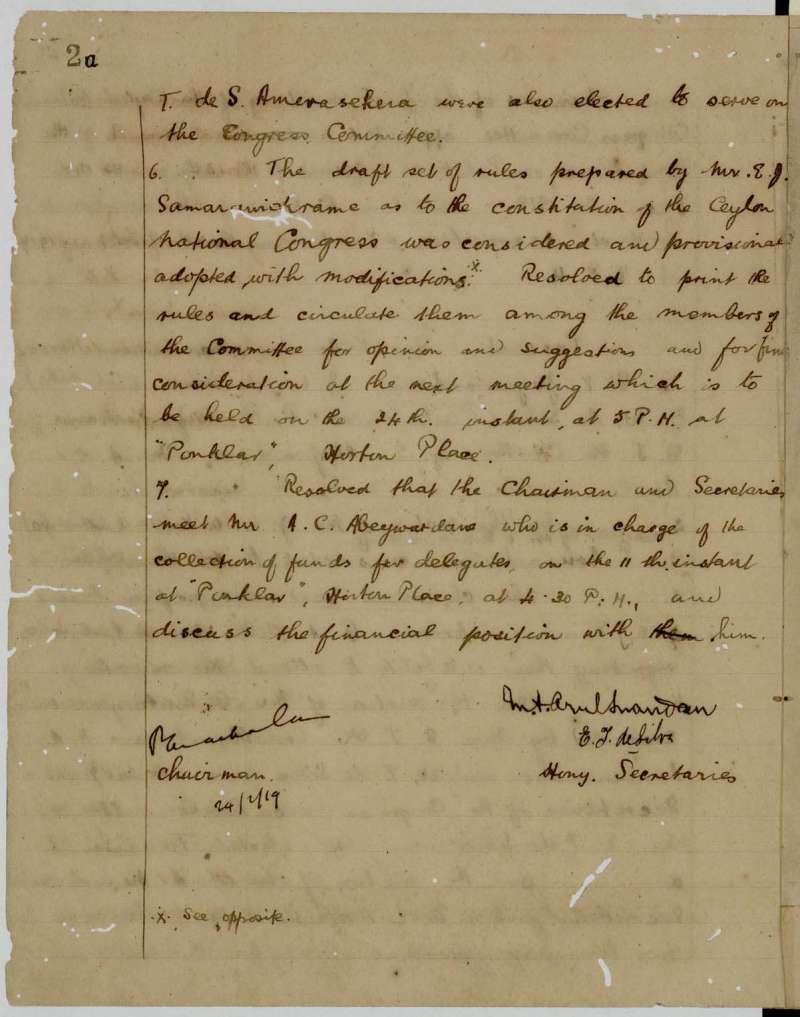 2a
T. de S. Amerasekera were also elected to serve on
the Congress Committee.
6. The draft set of rules prepared by Mr. E. J.
Samarawickrame as to the constitution of the Ceylon
National Congress was considered and provisional
adopted with modifications.x Resolved to print the
rules and circulate them among the members of
the Committee for opinion and suggestions and for fin
consideration at the next meeting which is to
be held on the 24th. instant, at 5 P.M. at
"Ponklar", Horton Place.
7. Resolved that the Chairman and Secretaries
meet Mr A. C. Abeywardane who is in charge of the
collection of funds for delegates, on the 11th. instant
at "Ponklar", Horton Place, at 4.30 P.M., and
discuss the financial position with them him.
M. A. Arulanandan
E. T. de Silva
Chairman. Hony. Secretaries
x See opposite.